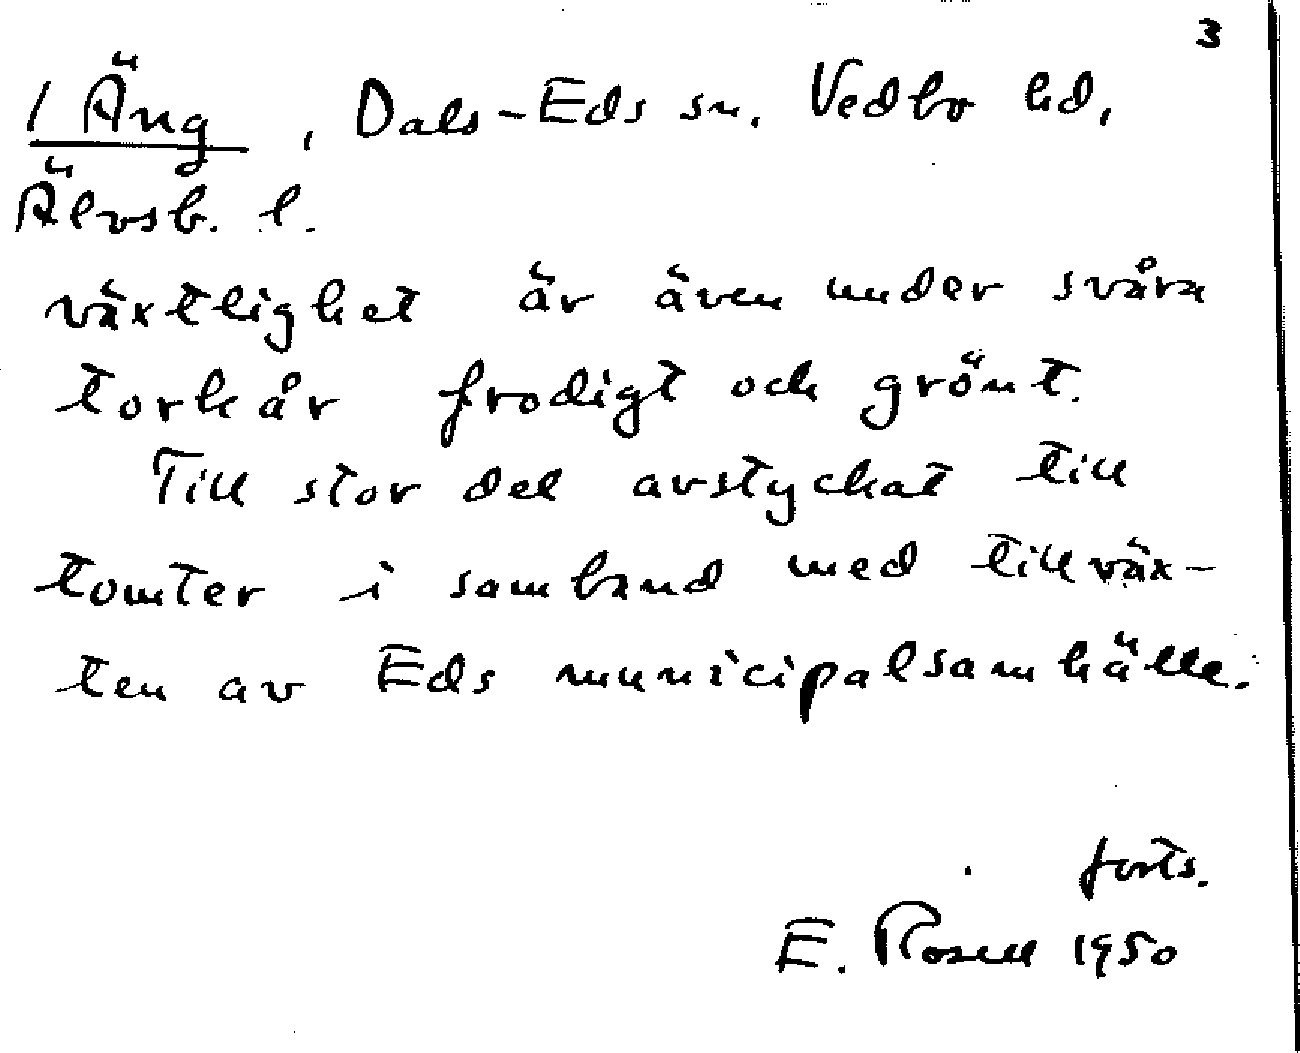 3
1 Äng, Dals-Eds sn. Vedbo hd,
Älvsb. l.
växtlighet är även under svåra
torkår frodigt och grönt.
Till stor del avstyckat till
tomter i samband med tillväx-
ten av Eds municipalsamhälle.
forts.
E. Rosell 1950